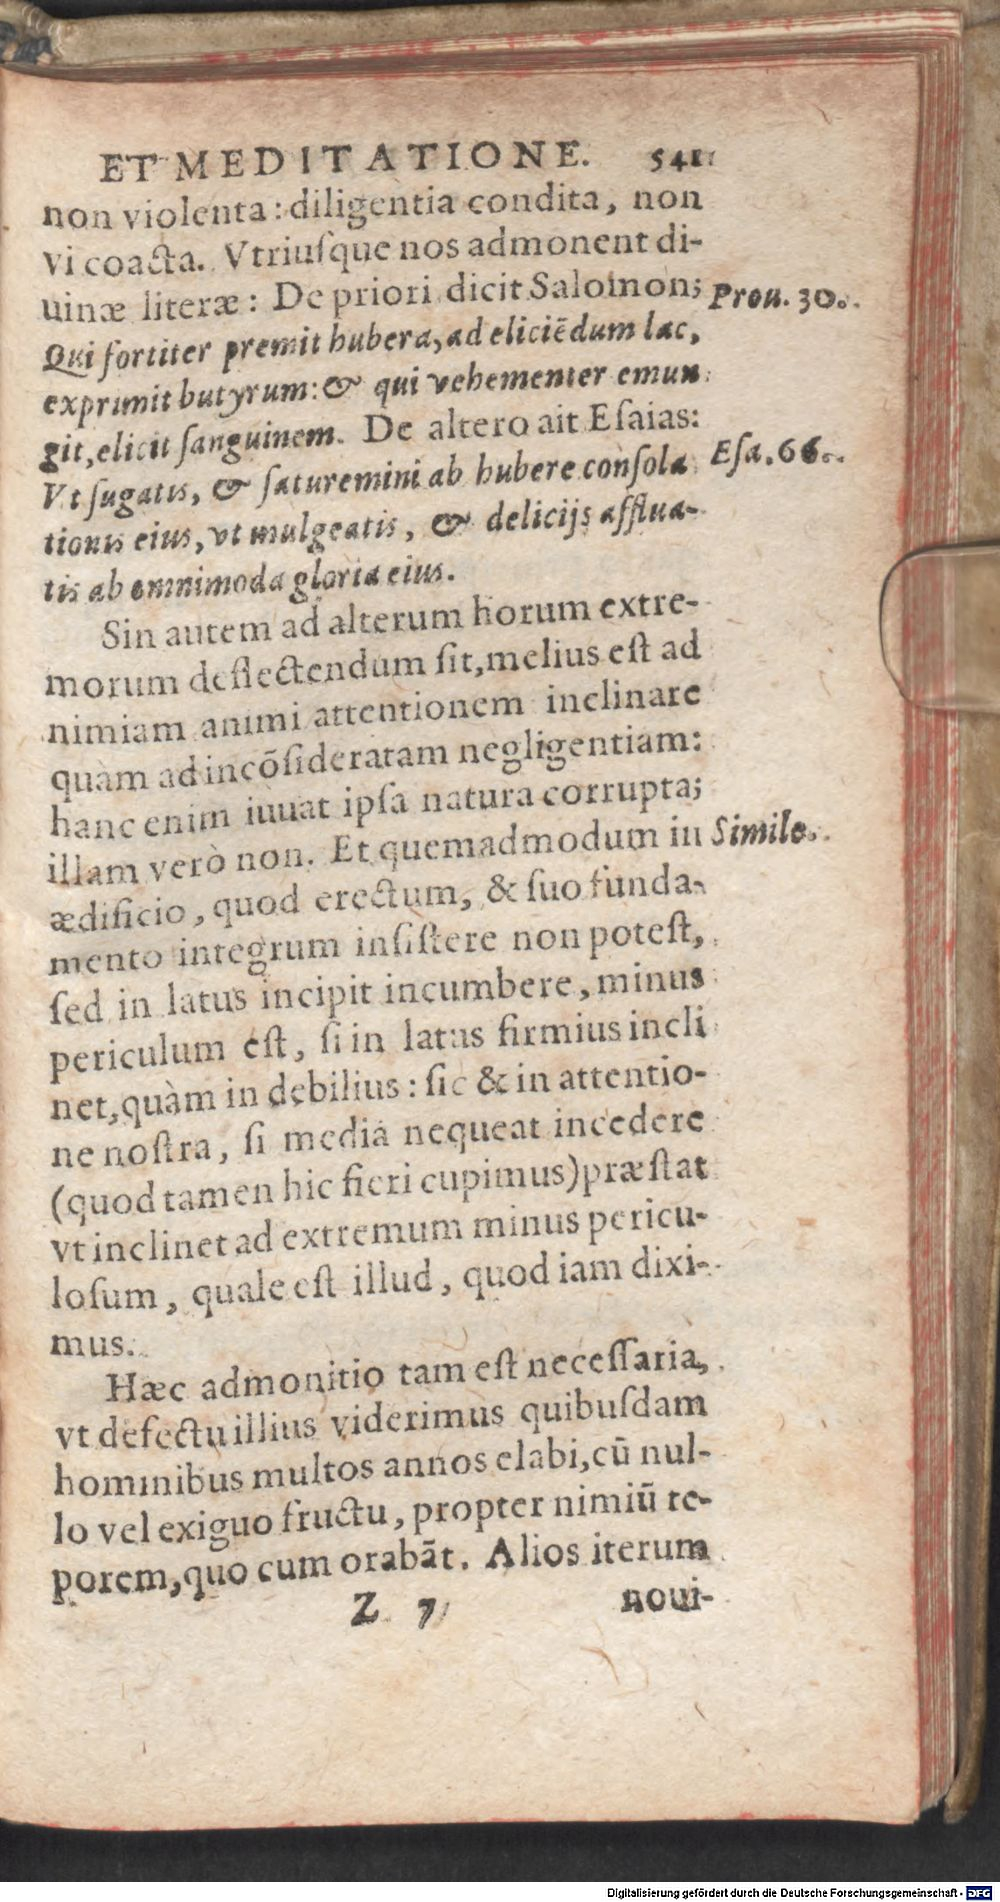 ET MEDITATIONE. 541
non violenta: diligentia condita, non
vi coacta. Vtriuſque nos admonent di-
uinæ literæ: De priori dicit Salomon; Prou. 30.
Qui fortiter premit hubera, ad eliciēdum lac,
exprimit butyrum: & qui vehementer emun
git, elicit ſanguinem. De altero ait Eſaias:
Vt ſugatis, & ſaturemini ab hubere conſola Eſa. 66.
tionis eius, vt mulgeatis, & delicijs afflua-
tis ab omnimoda gloria eius.
Sin autem ad alterum horum extre-
morum deflectendum ſit, melius eſt ad
nimiam animi attentionem inclinare
quàm ad incõſideratam negligentiam:
hanc enim iuuat ipſa natura corrupta;
illam verò non. Et quemadmodum in Simile.
ædificio, quod erectum, & ſuo funda-
mento integrum inſiſtere non poteſt,
ſed in latus incipit incumbere, minus
periculum eſt, ſi in latus firmius incli
net, quàm in debilius: ſic & in attentio-
ne noſtra, ſi media nequeat incedere
(quod tamen hic fieri cupimus) præſtat
vt inclinet ad extremum minus pericu-
loſum, quale eſt illud, quod iam dixi-
mus.
Hæc admonitio tam eſt neceſſaria,
vt defectu illius viderimus quibuſdam
hominibus multos annos elabi, cū nul-
lo vel exiguo fructu, propter nimiū te-
porem, quo cum orabāt. Alios iterum
Z 7 noui-
Digitalisierung gefördert durch die Deutsche Forschungsgemeinschaft - DFG